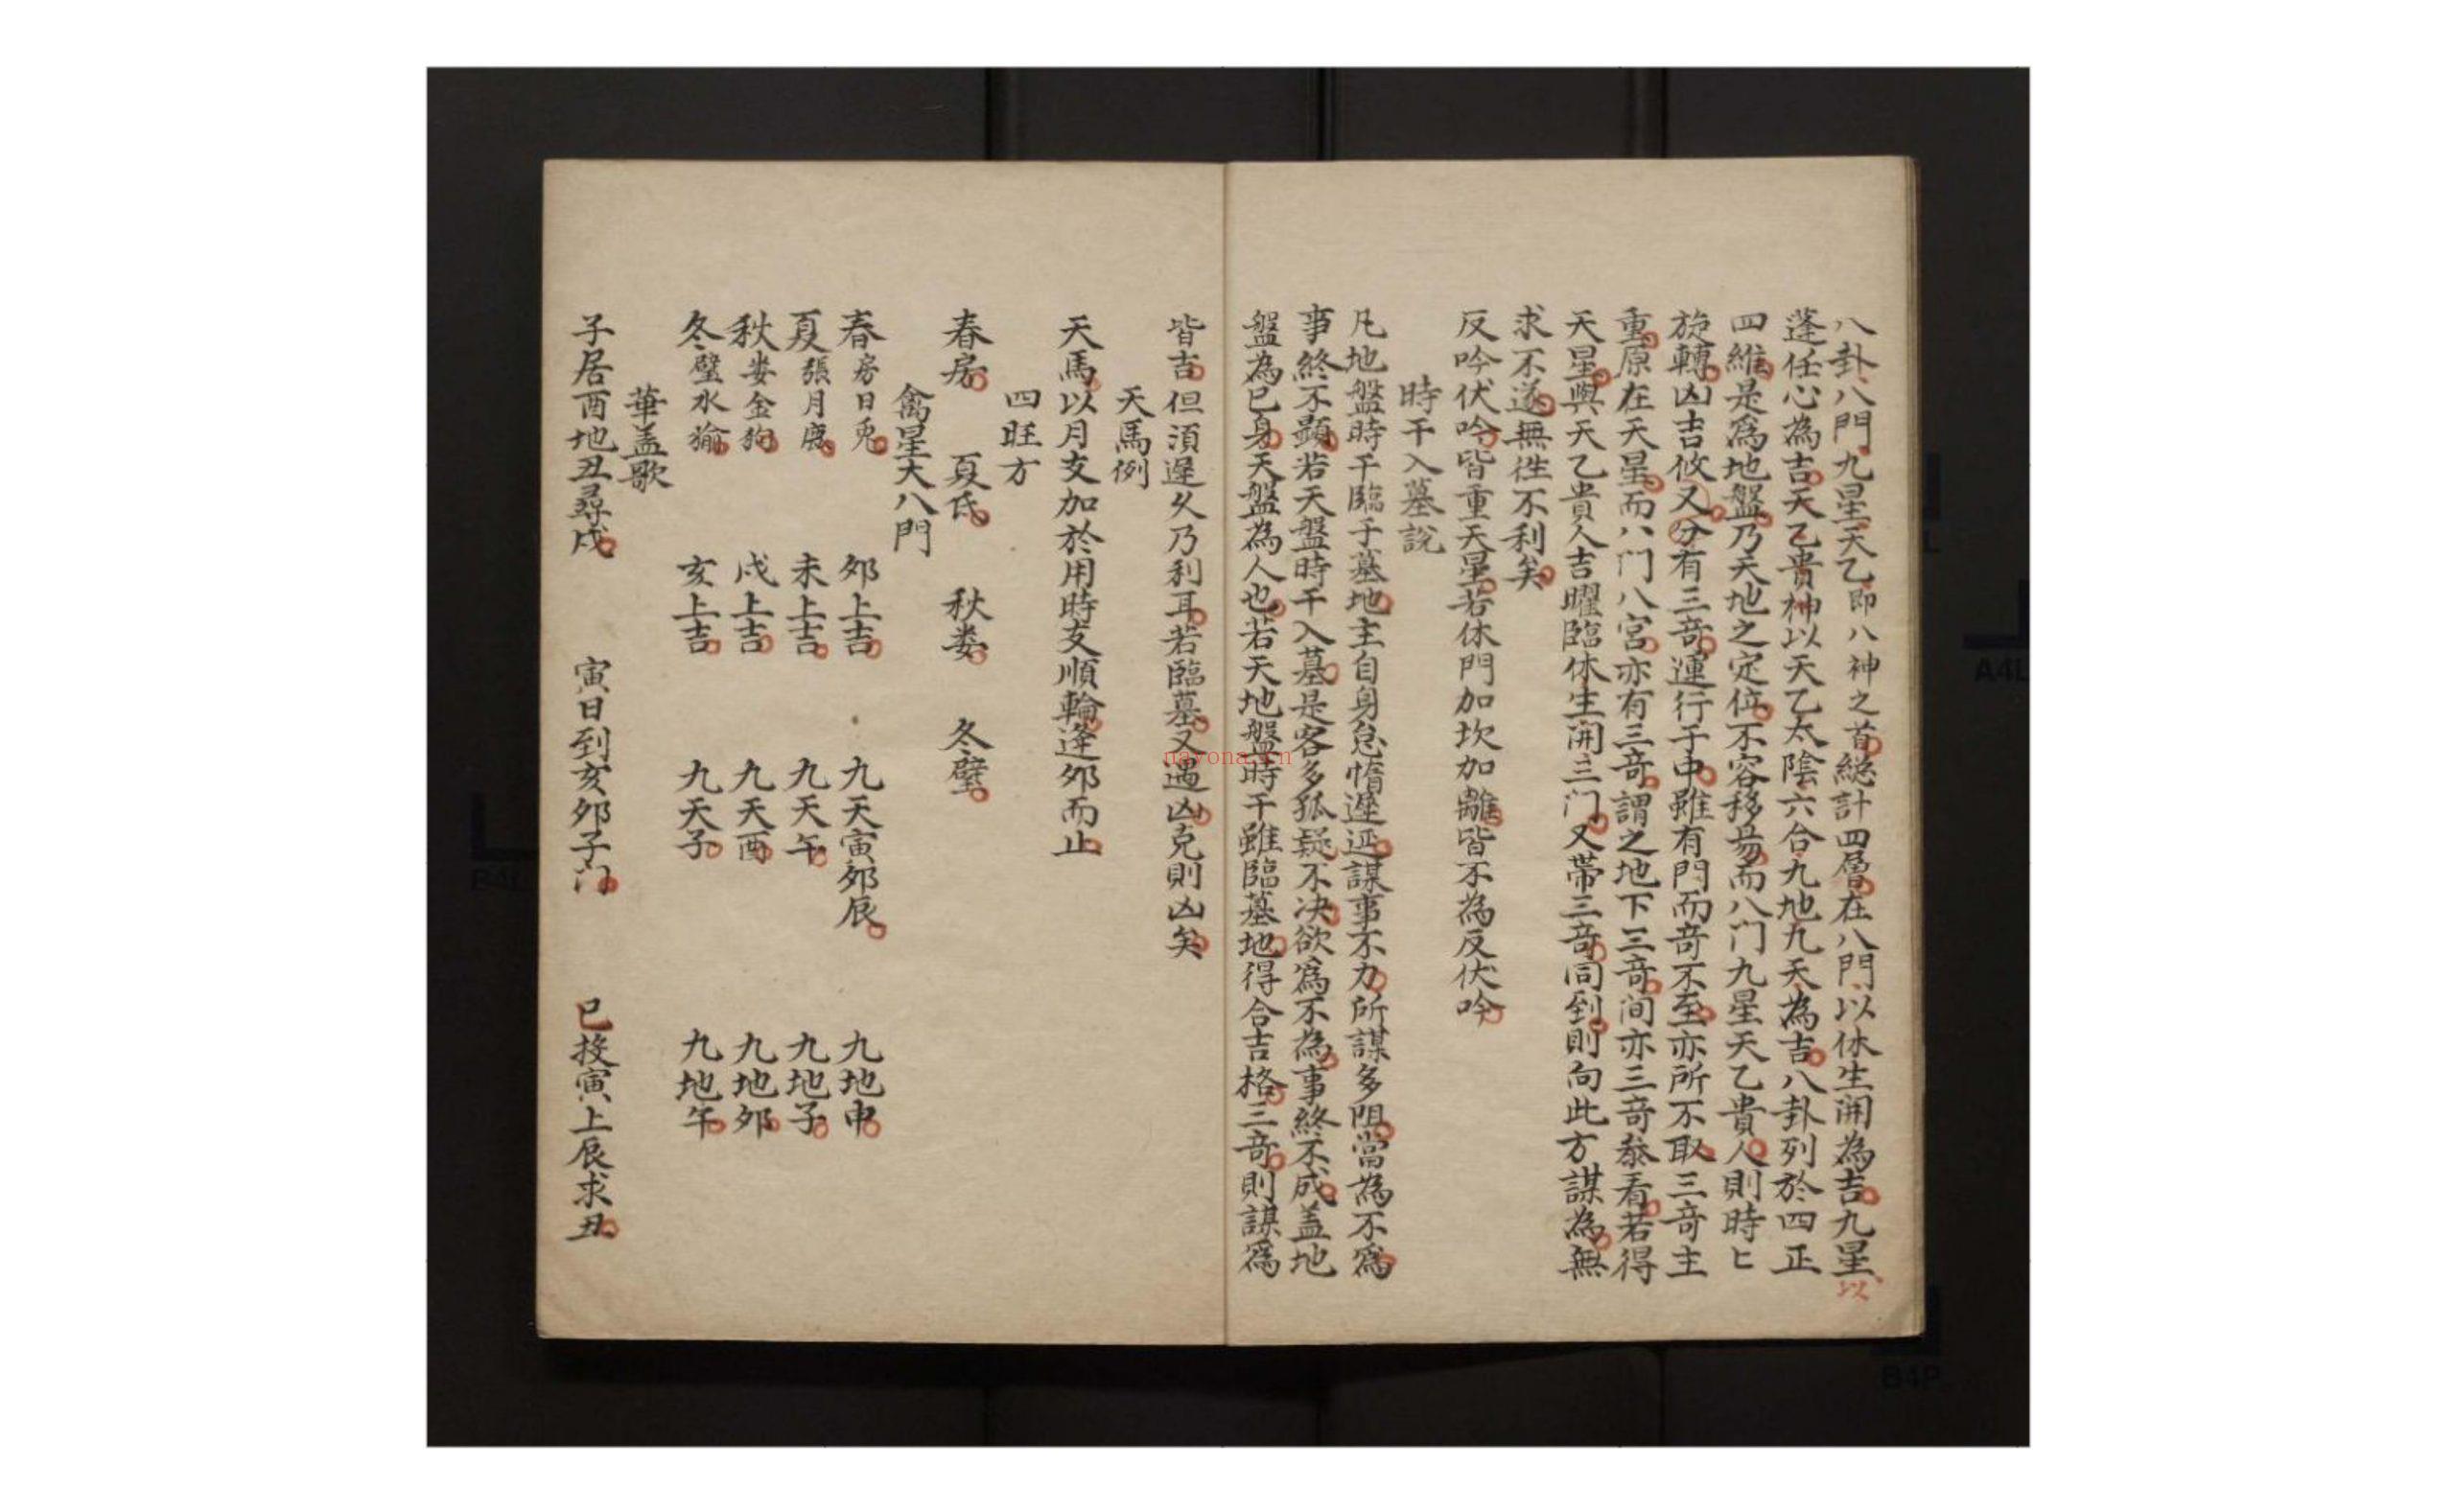 八卦八門九星天乙即八神之首總計四層在八門以休生開為吉九星以
蓬任心為吉天乙貴神以天乙太陰六合九地九天為吉八卦列於四正
四維是爲地盤乃天地之定位不容移易而八门九星天乙貴人則時匕
旋轉凶吉攸又分有三竒運行于中雖有門而竒不至亦所不取三竒主
重原在天星而八门八宮亦有三竒謂之地下三竒间亦三竒叅看若得
天星與天乙貴人吉曜臨休生開三门又帶三竒同到則向此方謀為無
求不遂無徃不利矣
反吟伏吟皆重天星若休門加坎加離皆不為反伏吟
時干入墓說
凡地盤時干臨于墓地主自身怠惰遲延謀事不力所謀多阻當為不爲
事終不顯若天盤時干入墓是客多狐疑不决欲爲不為事終不成盖地
盤為已身天盤為人也若天地盤時干雖臨墓地得合吉格三竒則謀爲
皆吉但須遲久乃利耳若臨墓又遇凶克則凶矣
天馬例
天馬以月支加於用時支順輪逢夘而止
四旺方
春房 夏氐 秋娄 冬壁
禽星大八門
春房日兎 夘上吉 九天寅夘辰 九地申
夏張月鹿 未上吉 九天午 九地子
秋娄金狗 戌上吉 九天酉 九地夘
冬壁水㺄 亥上吉 九天子 九地午
華盖歌
子居酉地丑尋戌 寅日到亥夘子门 巳投寅上辰求丑
nayona.cn
A4L
B4P